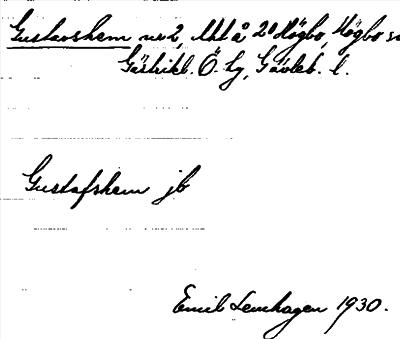 Gustavshem nr 2, lht å 20 Högbo, Högbo sn
Gästrikl. Ö. hg, Gävleb. l.
Gustafshem jb
Emil Lenhagen 1930.